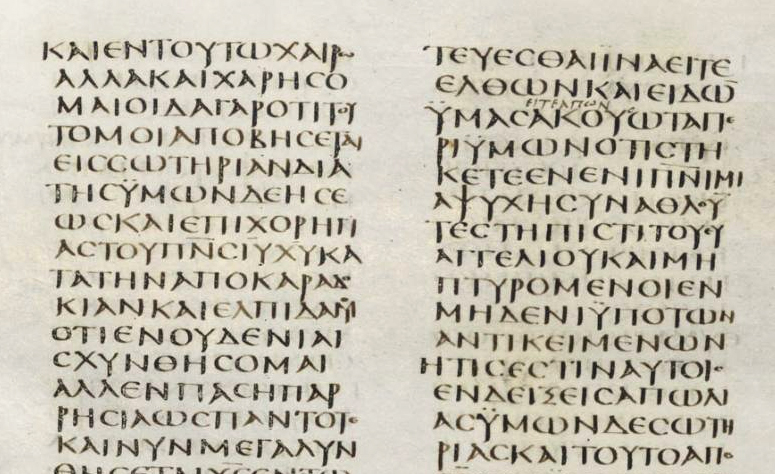 ΚΑΙΕΝΤΟΥΤΩΧΑΙΡω
ΑΛΛΑΚΑΙΧΑΡΗϹΟ
ΜΑΙΟΙΔΑΓΑΡΟΤΙΤΟΥ
ΤΟΜΟΙΑΠΟΒΗϹΕΤΑΙ
ΕΙϹϹΩΤΗΡΙΑΝΔΙΑ
ΤΗϹΫΜΩΝΔΕΗϹΕ
ΩϹΚΑΙΕΠΙΧΟΡΗΓΙ
ΑϹΤΟΥΠ̅Ν̅Ϲ̅Ι̅Υ̅Χ̅Υ̅ΚΑ
ΤΑΤΗΝΑΠΟΚΑΡΑΔΟ
ΚΙΑΝΚΑΙΕΛΠΙΔΑΜΟΥ
ΟΤΙΕΝΟΥΔΕΝΙΑΙ
ϹΧΥΝΘΗϹΟΜΑΙ
ΑΛΛΕΝΠΑϹΗΠΑΡ
ΡΗϹΙΑΩϹΠΑΝΤΟΤΕ
ΚΑΙΝΥΝΜΕΓΑΛΥΝ
ΘΗϹΕΤΑΙΧ̅Ϲ̅ΕΝΤΩ
ΤΕΥΕϹΘΑΙΪΝΑΕΙΤΕ
ΕΛΘΩΝΚΑΙΕΙΔΩ̅
ΕΙΤΕΑΠΩΝ
ΫΜΑϹΑΚΟΥΩΤΑΠΕ
ΡΙΫΜΩΝΟΤΙϹΤΗ
ΚΕΤΕΕΝΕΝΙΠ̅Ν̅Ι̅ΜΙ
ΑΨΥΧΗϹΥΝΑΘΛΟΥ
ΤΕϹΤΗΠΙϹΤΙΤΟΥΕΥ
ΑΓΓΕΛΙΟΥΚΑΙΜΗ
ΠΤΥΡΟΜΕΝΟΙΕΝ
ΜΗΔΕΝΙΫΠΟΤΩΝ
ΑΝΤΙΚΕΙΜΕΝΩΝ
ΗΤΙϹΕϹΤΙΝΑΥΤΟΙϹ
ΕΝΔΕΙΞΕΙϹΑΠΩΛΙ
ΑϹΫΜΩΝΔΕϹΩΤΗ
ΡΙΑϹΚΑΙΤΟΥΤΟΑΠΟ